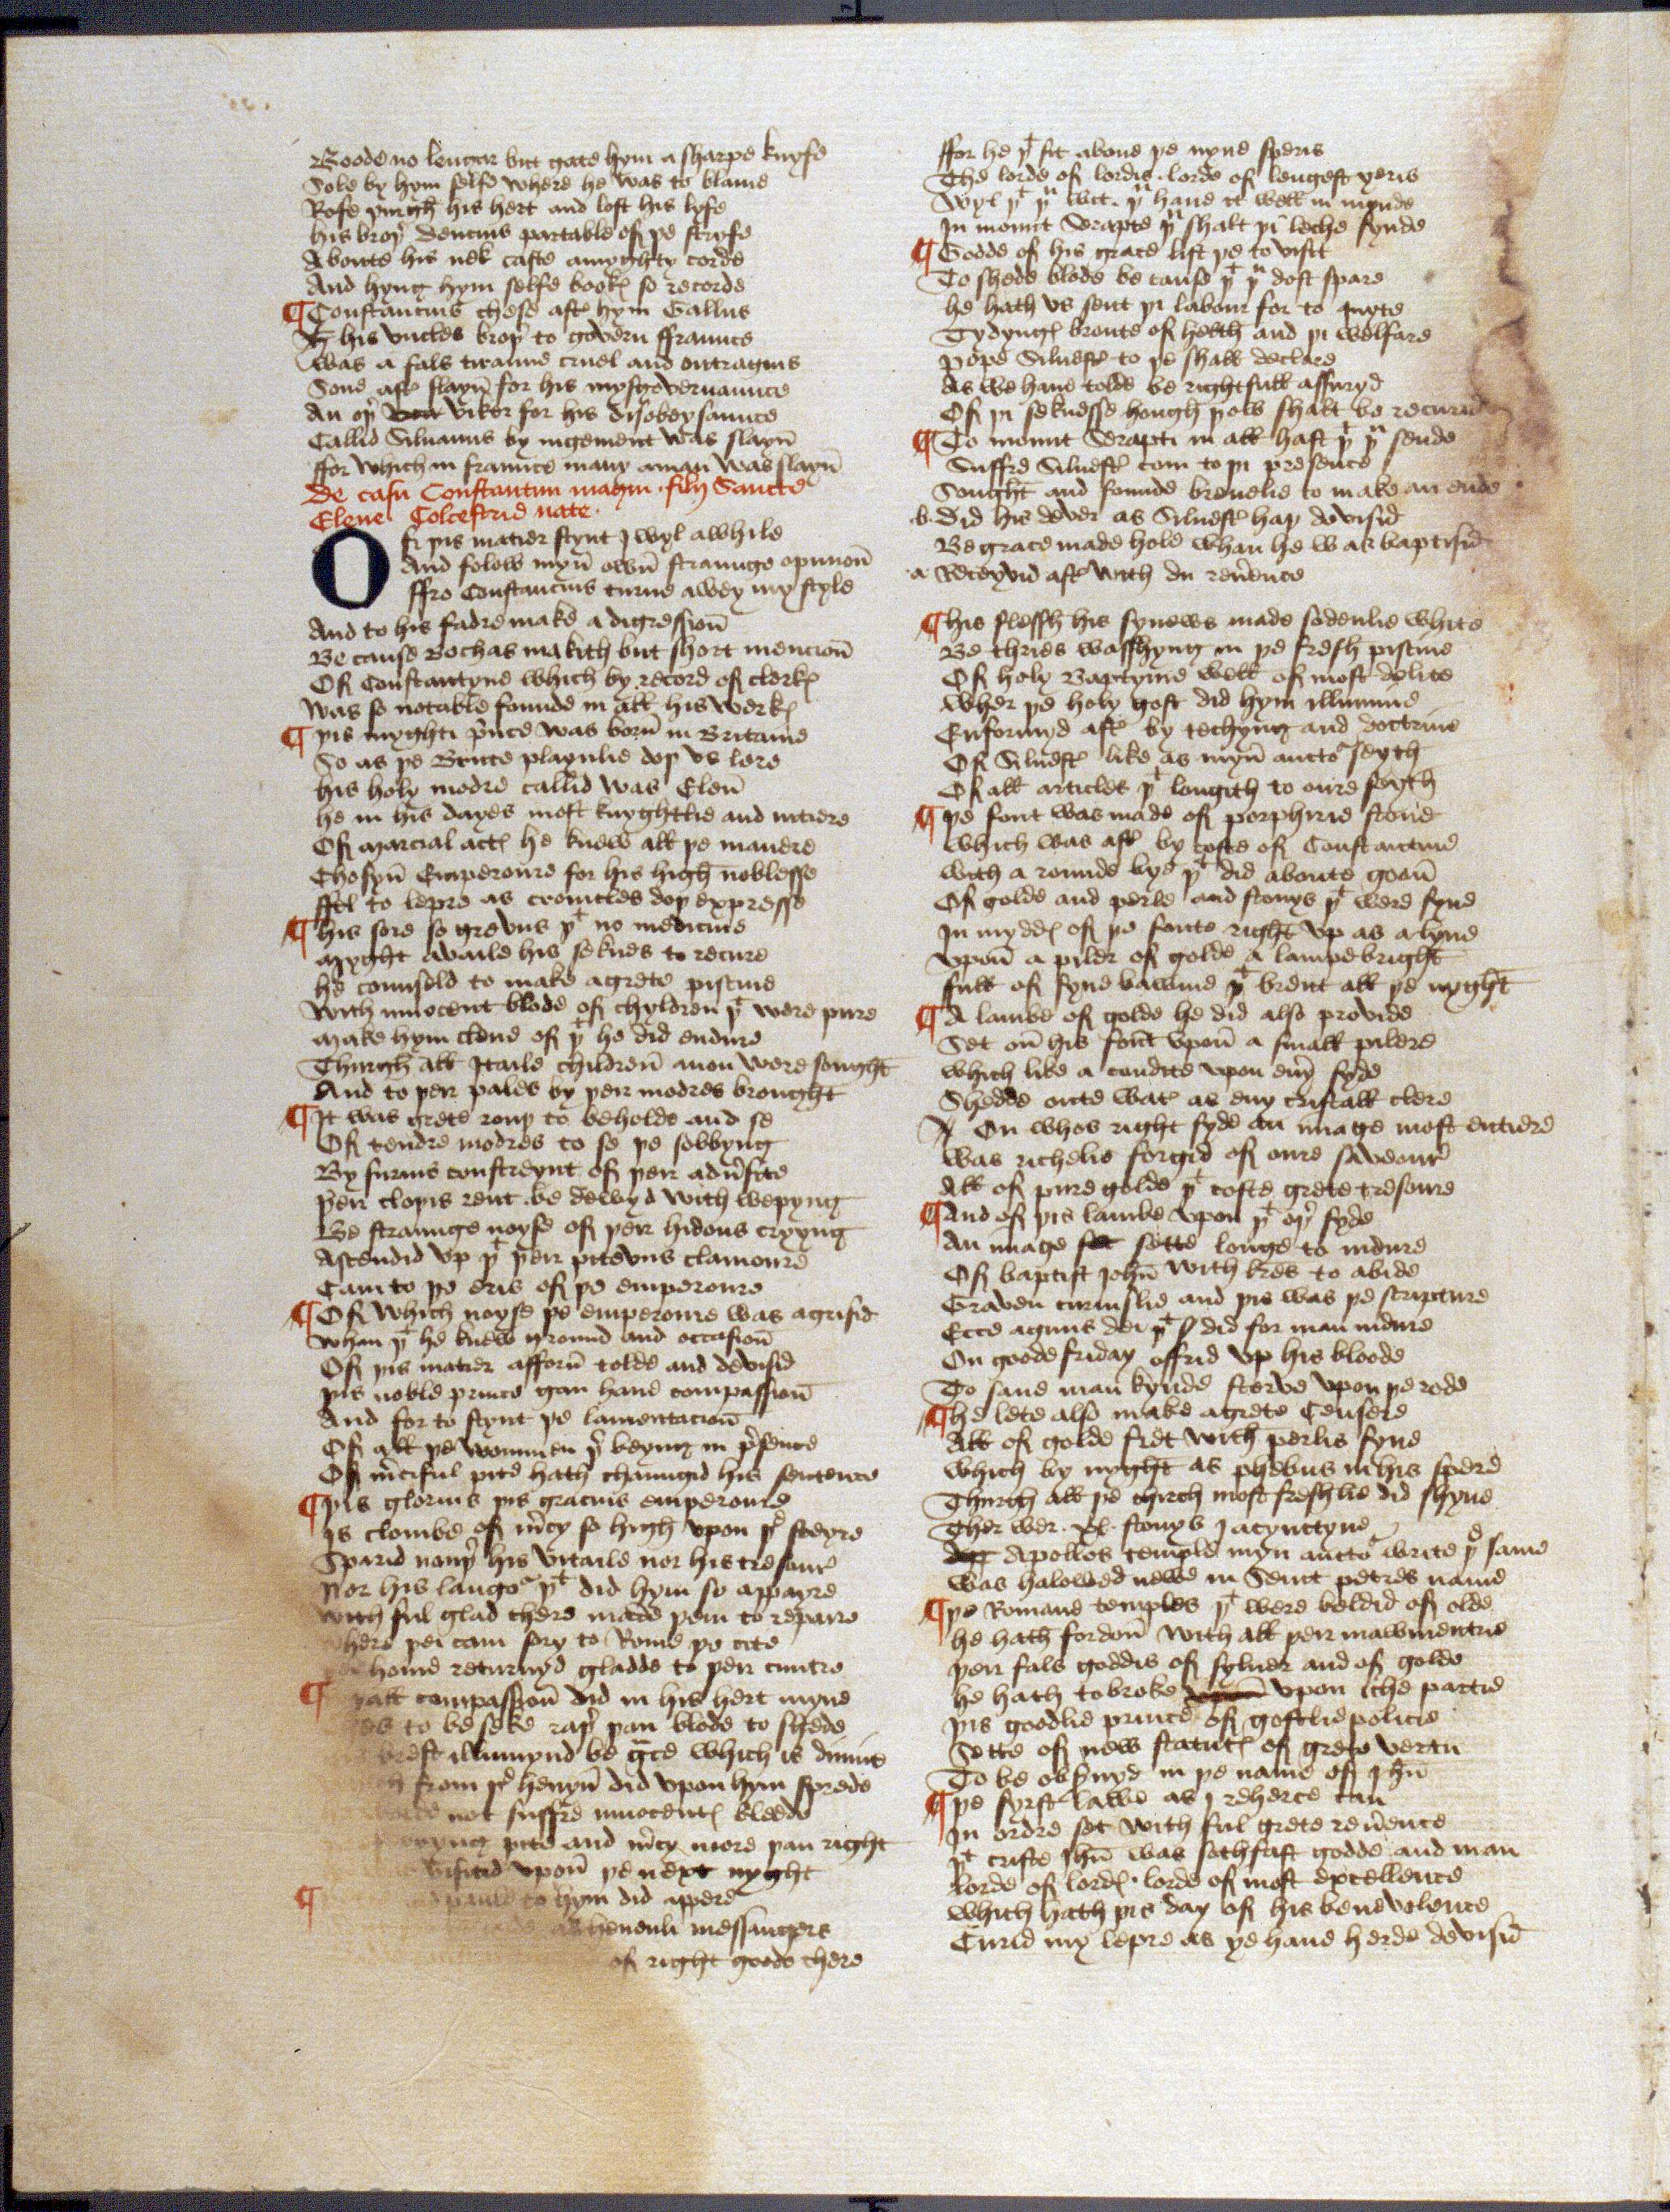 Boode no lengar but gate hym a sharpe knyfe
Sole by hym selfe where he was to blame
Rofe þurgh his hert and lost his lyfe
his broþ' Dencius partable of þe stryfe
Aboute his nek caste a myghty corde
And hyng hym selfe bookes so recorde
¶ Constancius chese aft' hym Gallus
his vncles broþ' to govern ffraunce
was a fals tiraunt cruel and outragius
Sone aft' slayn for his mysgovernaunce
An oþ' viker for his disobeysaunce
Callid Siluanus by iugement was slayn
ffor which in fraunce many a man was slayn
De casu Constantini magni filij Sancte
Elene Colcestrie nate
Of þis matier stynt I wyl a while
And folow myn own straunge opinion
ffro Constancius turne awey my style
And to his fadre make a digression
Be cause Bochas makith but short mencion
Of Constantyne which by record of clerkes
was so notable founde in all his werkes
¶ þis myghti prince was born in Britaine
So as þe Brute playnlie doþ vs lere
his holy modre callid was Elen
he in his dayes most knyghtlie and intiere
Of marcial actes he knew all þe manere
Chosyn Emperoure for his high noblesse
ffel to lepre as cronicles doþ expresse
¶ his sore so grevus þt no medicine
myght availe his seknes to recure
he counseld to make a grete piscine
with innocent blode of chyldren þt were pure
make hym clene of þt he did endure
Thurgh all Itaile children anon were sought
And to þeir pales by þeir modres brought
¶ It was grete rouþ to beholde and se
Of tendre modres to se þe sobbyng
By furius constreynt of þeir adu'site
þeir cloþis rent be dewyd with wepyng
Be straunge noyse of þeir hidous cryyng
Ascendid vp þt þeir pitevus clamoure
Cam to þe eris of þe emperoure
¶ Of which noyse þe emperoure was agrisid
whan þt he knew ground and occasion
Of þis matier afforn tolde and devisid
þis noble prince gan haue compassion
And for to stynt þe lamentacion
Of all þe wommen þ' beyng in p'sence
Of m'ciful pite hath chaungid his sentence
¶ þis glorius þis gracius emperoure
Is clombe of m'cy so high vpon þe steyre
Sparid nouþ' his vitaile nor his tresour
Nor his langor þt did hym so appayre
with ful glad chere made þem to repaire
here þei cam sory to Rome þe cite
home returnyd gladde to þeir cuntre
¶ yall compassion did in his hert myne
to be seke raþ' þan blode to shede
brest illumynd be g'ce which is diuine
from þe heuyn did vpon hym sprede
not suffre innocentes bleede
pite and m'cy more þan right
visitid vpon þe next nyght
¶ to hym did appere
heuenli messangers
of right goode chere
ffor he þt sit aboue þe nyne speris
The lorde of lordis lorde of lengest yeris
wyl þt þu wit þu haue it well in mynde
In mount Serapte þu shalt þi leche fynde
¶ Godde of his grace list þe to visit
To shede blode be cause þt þu dost spare
he hath vs sent þi labour for to quyte
Tydynges broute of helth and þi welfare
pope Siluest' to þe shall declare
As we haue tolde be rightfull assuryd
Of þi seknesse hough þow shalt be recurid
¶ To mount Serapti in all hast þt þu sende
Suffre Siluest' com to þi presence
Sought and founde breuelie to make an ende
.b. did his dever as Siluest' hap devisid
Be grace made hole whan he was baptisid
.a Receyvid aft' with du reu'ence
¶ his flessh his synews made sodenlie white
Be thries wasshyng in þe fresh piscine
Of holy Baptyme well of most delite
wher þe holy gost did hym illumine
Enformyd aft' by techyng and doctrine
Of Siluest' like as myn auctor seyth
Of all articles þt longith to oure feyth
¶ þe font was made of porphirie stone
which was aft' by coste of Constantine
with a rounde bye þt did aboute goon
Of golde and perle and stonys þt were fyne
In myddes of þe fonte right vp as a lyne
vpon a piler of golde a lampe bright
full of fyne bawme þt brent all þe nyght
¶ A lambe of golde he did also provide
Set on his font vpon a small pilere
which like a condite vpon eu'y syde
Shedde oute wat' as eny cristall clere
On whos right syde an image most entiere
was richelie forgid of oure saveour
All of pure golde þt coste grete tresoure
¶ And of þis lambe vpon þt oþ' syde
An image sette longe to indure
Of baptist John with lettres to abide
Graven curiuslie and þis was þe scripture
Ecce agnus dei þt did for man indure
On goode friday offrid vp his bloode
To saue man kynde sterve vpon þe rode
¶ he lete also make a grete Censere
All of golde fret with perlis fyne
which by nyght as phebus in his spere
Thurgh all þe chirch most freshlie did shyne
Ther wer .xl. stonys jacynctyne
Apollos temple myn auctor write þe same
was halowed newe in Seint petres name
¶ þe Romane temples þt were beldid of olde
he hath fordon with all þeir mawmentrie
þeir fals goddis of syluer and of golde
he hath tobroke vpon iche partie
þis goodlie prince of gostlie policie
Sette of new statutes of grete vertu
To be obs'uyd in þe name of Jhu
¶ þe fyrst lawe as I reherce can
In ordre set with ful grete reu'ence
þt criste Jhu was sothfast godde and man
lorde of lordes lorde of most excellence
which hath þis day of his benevolence
Curid my lepre as ye haue herde devisid